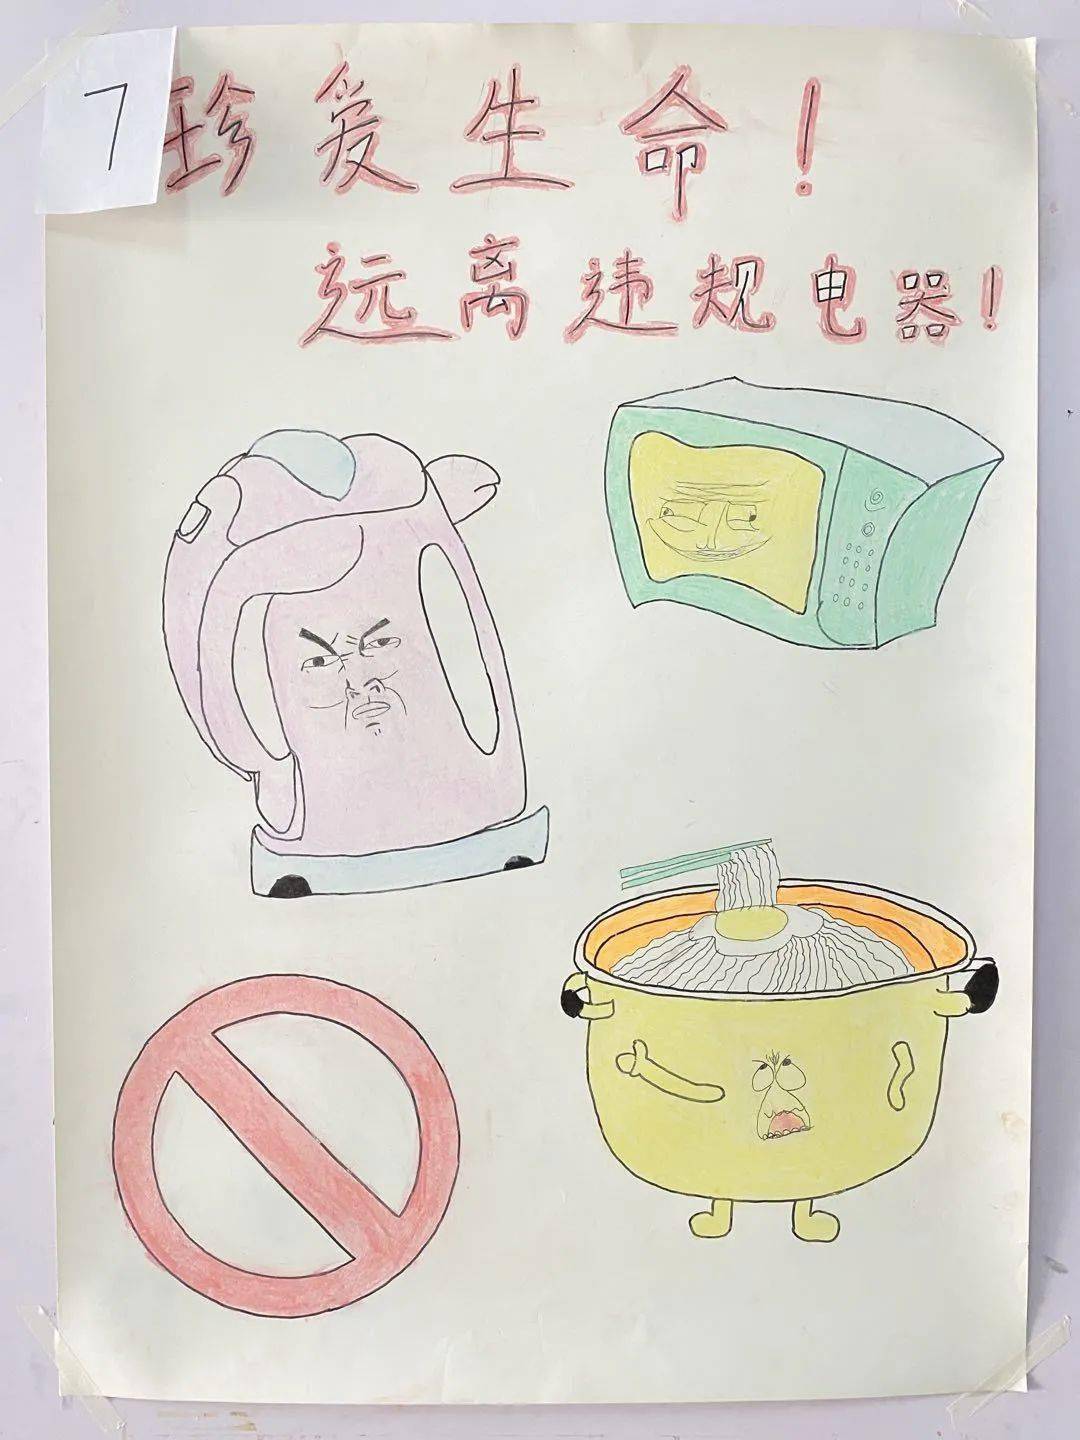 7
珍爱生命！
远离违规电器！